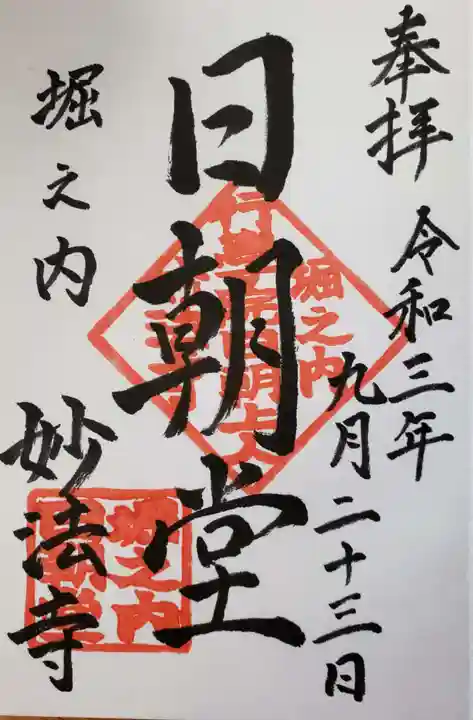 奉拝
令和三年
九月二十三日
日朝堂
堀之内
妙法寺
堀之内
堀之内